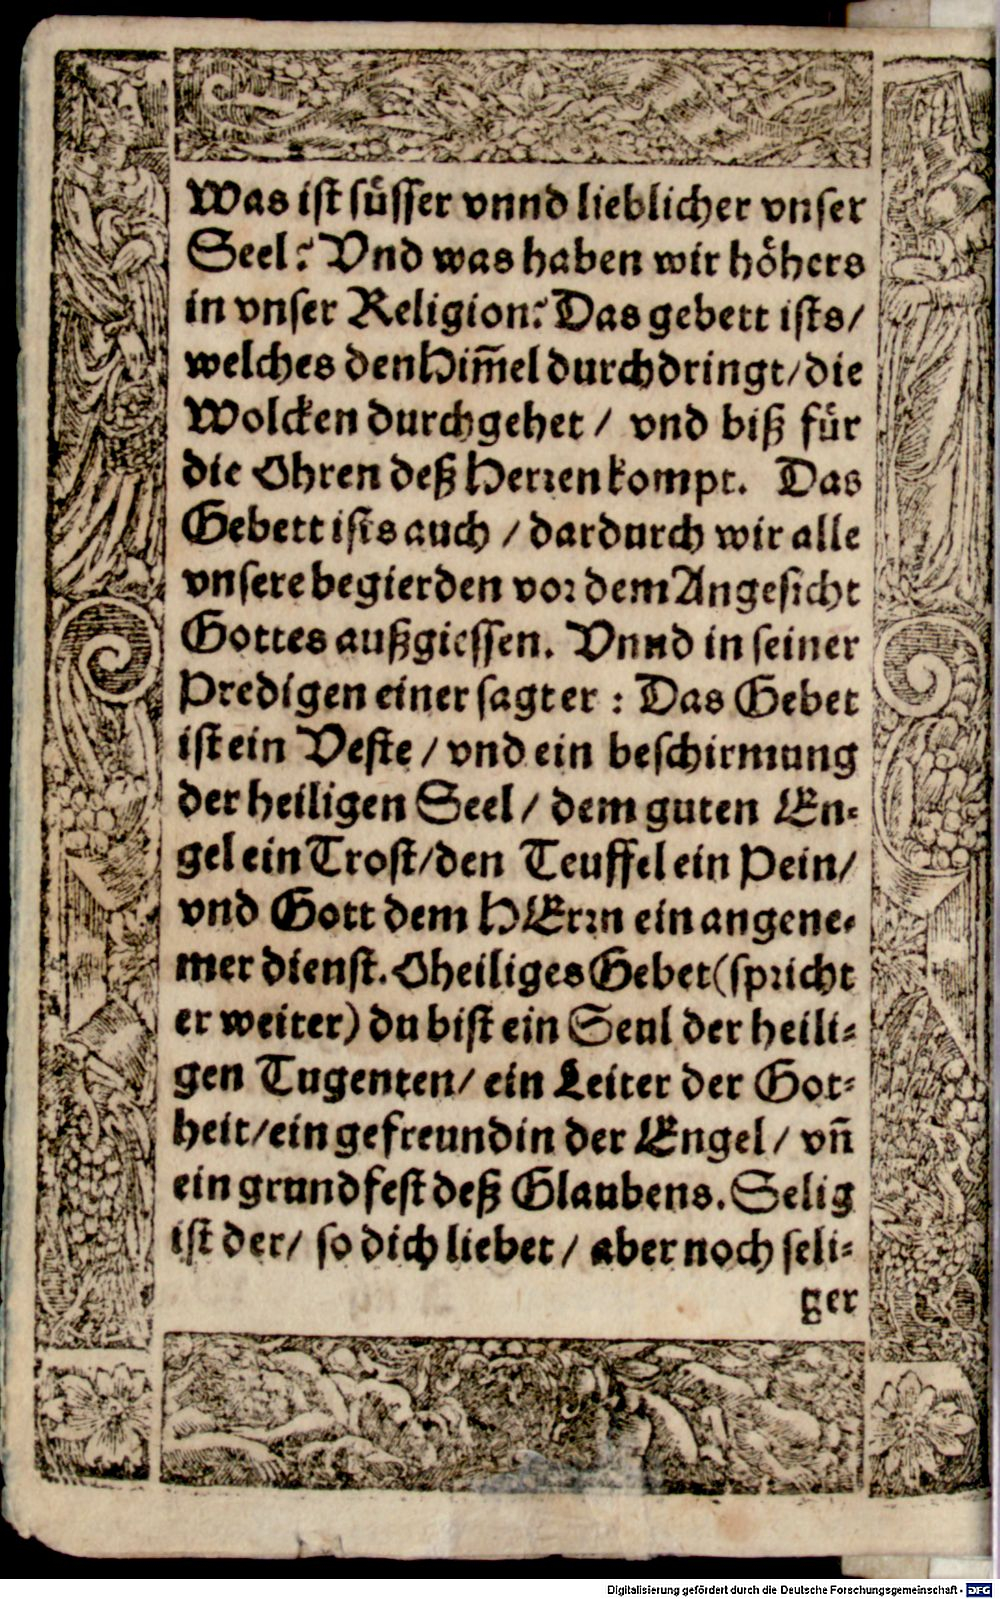 Was ist suͤsser vnnd lieblicher vnser
Seel? Vnd was haben wir hoͤhers
in vnser Religion? Das gebett ists/
welches den Him̃el durchdringt/die
Wolcken durchgehet / vnd biß fuͤr
die Ohren deß Herꝛen kompt. Das
Gebett ists auch / dardurch wir alle
vnsere begierden voꝛ dem Angesicht
Gottes außgiessen. Vnnd in seiner
Predigen einer sagt er : Das Gebet
ist ein Veste / vnd ein beschirmung
der heiligen Seel / dem guten En⸗
gel ein Trost/den Teuffel ein Pein/
vnd Gott dem HErꝛn ein angene⸗
mer dienst. O heiliges Gebet(spꝛicht
er weiter) du bist ein Seul der heili⸗
gen Tugenten/ ein Leiter der Got⸗
heit/ein gefreundin der Engel / vñ
ein grundfest deß Glaubens. Selig
ist der/ so dich liebet / aber noch seli⸗
ger
Digitalisierung gefördert durch die Deutsche Forschungsgemeinschaft - DFG